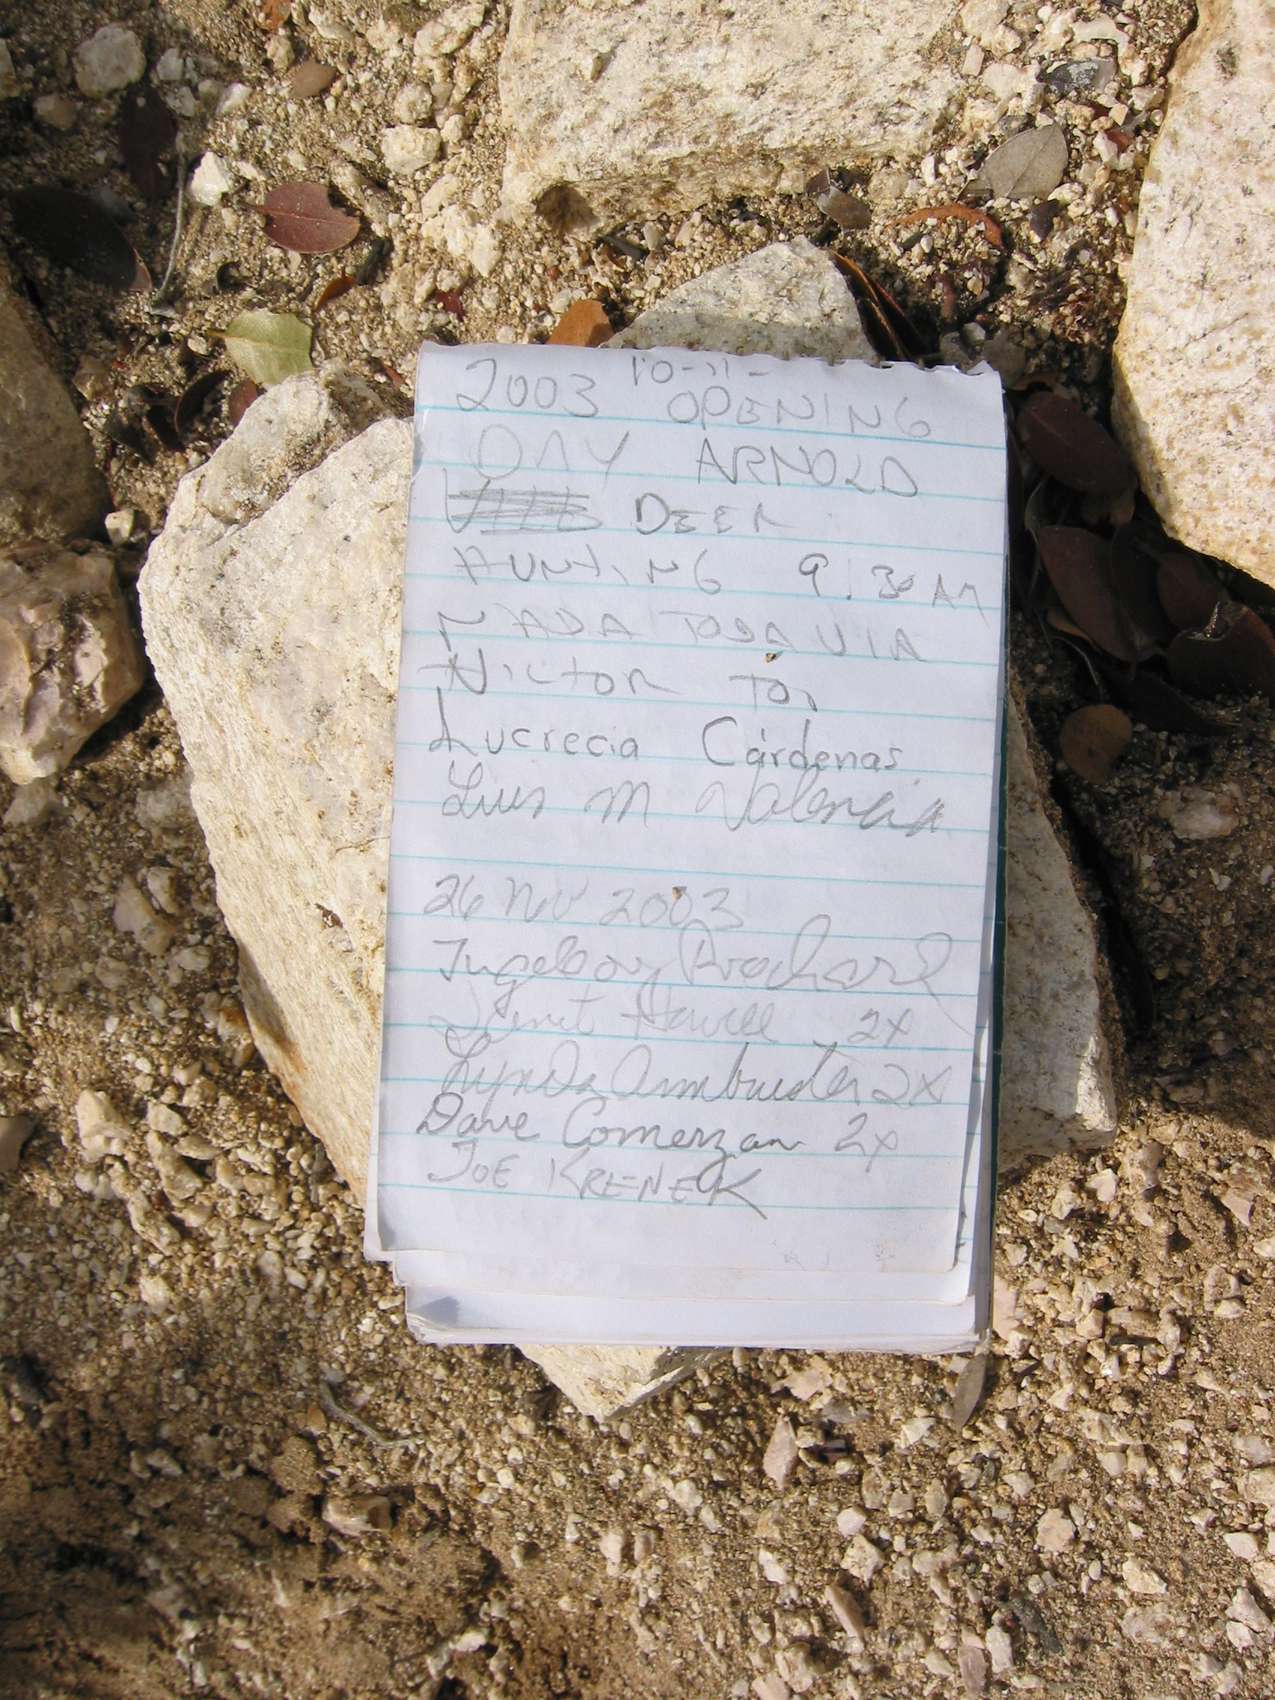 2003 10-11-
OPENING
DAY ARNOLD
DEER
HUNTING 9:30 AM
NADA TODAVIA
Lucrecia Cárdenas
Luis M Valencia
26 Nov 2003
Howell 2x
Lynda 2x
Dave Comerzan 2x
JOE KRENEK